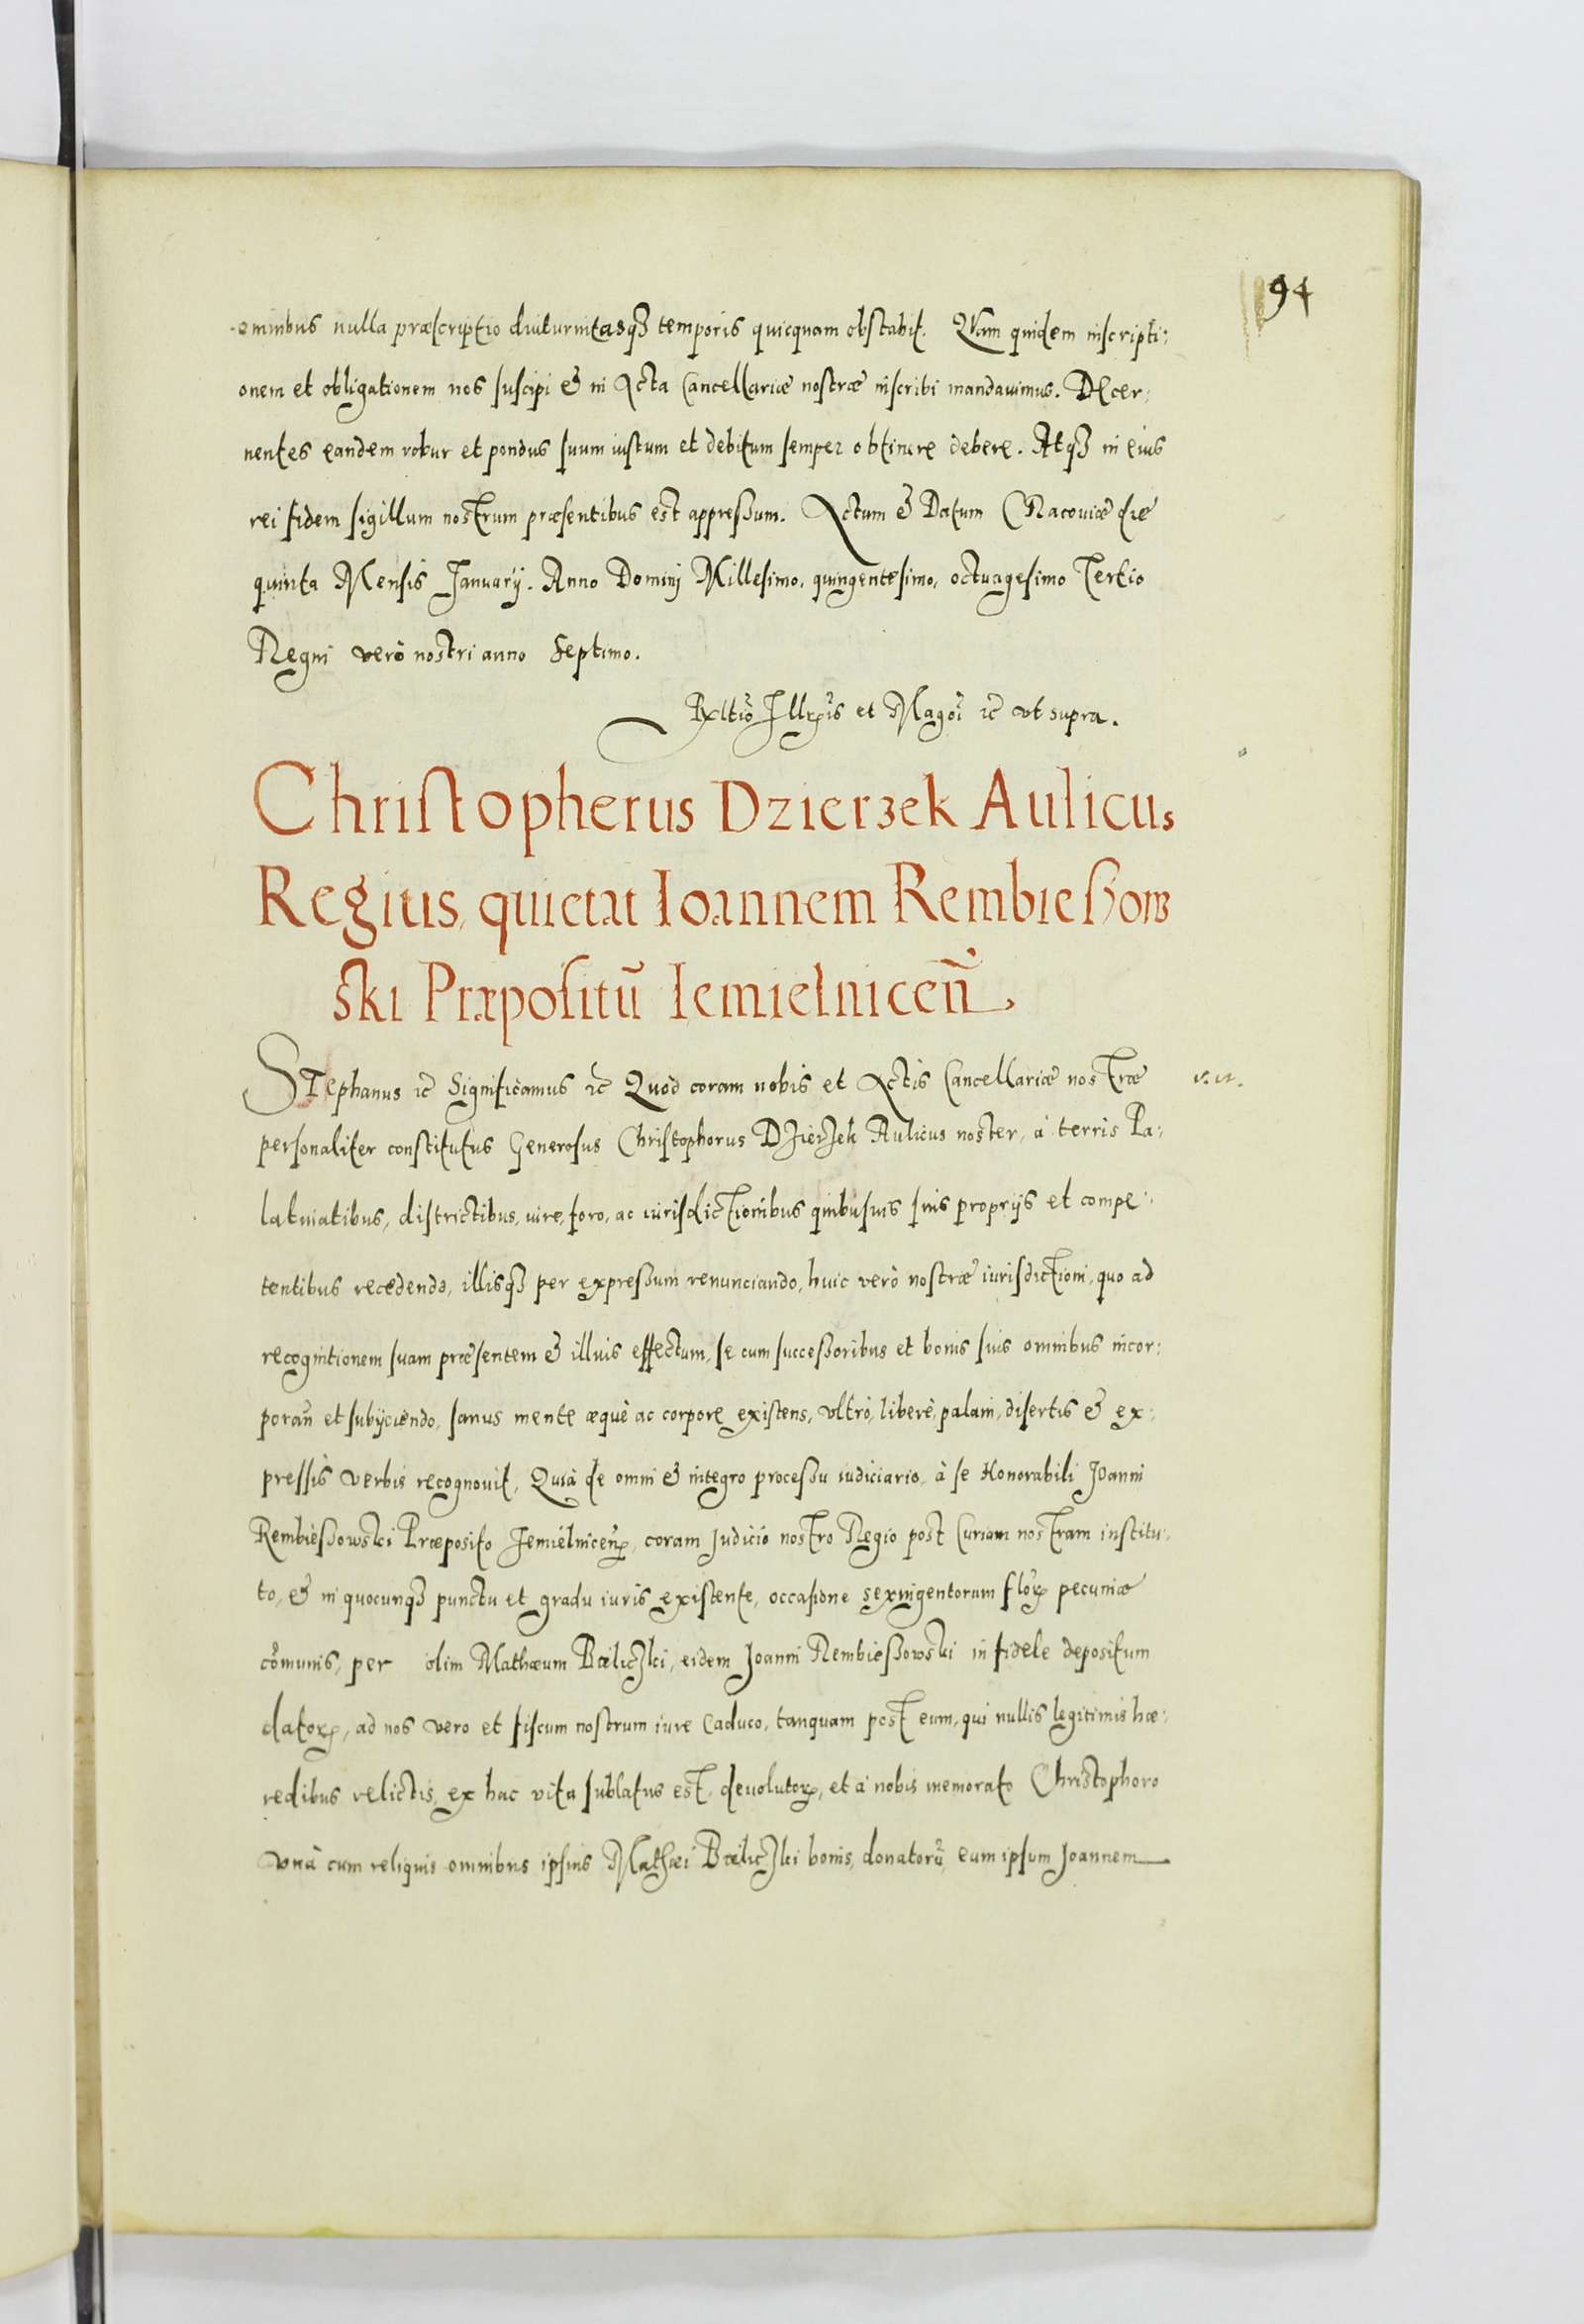 94
ominibus nulla præscriptio diuturnitasqȝ temporis quicquam obstabit. QVam quidem inscripti:
onem et obligationem nos suscipi & in Acta Cancellariæ nostræ inscribi mandauimus. DEcer:
nentes eandem robur et pondus suum iustum et debitum semper obtinere debere. Atqȝ in eius
rei fidem sigillum nostrum præsentibus est appressum. Actum & Datum CRacouiæ die
quinta Mensis Januarij. Anno Dominj Millesimo, quingentesimo, octuagesimo Tertio
Regni verò nostri anno Septimo.
et Magci ꝛc vt supra.
Christopherus Dzierzek Aulicus
Regius, quietat Ioannem Rembieszow
ski Præpositũ Iemielniceñ
STephanus ꝛc Significamus ꝛc Quod coram nobis et Actis Cancellariæ nostræ
personaliter constitutus Generosus Christophorus DZierZek Aulicus noster, à terris Pa:
latinatibus, districtibus, iure, foro, ac iurisdictionibus quibusuis suis proprijs et compe:
tentibus recedendo, illisqȝ per expressum renunciando, huic verò nostræ iurisdictioni, quo ad
recognitionem suam præsentem & illius effectum, se cum successoribus et bonis suis omnibus incor:
porañ et subijciendo, sanus mente æquè ac corpore existens, vltrò, liberè, palam, disertis & ex:
pressis verbis recognouit, Quià de omni & integro processu iudiciario, à se Honorabili Joanni
Rembieszowski Præposito Jemielniceñ, coram Judicio nostro Regio post Curiam nostram institu:
to, & in quocunqȝ punctu et gradu iuris existente, occasione sexingentorum florꝝ pecuniæ
cõmunis, per olim Mathæum BæliczZki, eidem Joanni Rembieszowski in fidele depositum
datorꝝ, ad nos vero et fiscum nostrum iure Caduco, tanquam post eum, qui nullis legitimis hæ:
redibus relictis, ex hac vita sublatus est, deuolutorꝝ, et à nobis memorato Christophoro
vnà cum reliquis omnibus ipsius Mathæi BæliczZki bonis, donatorũ, eum ipsum Joannem